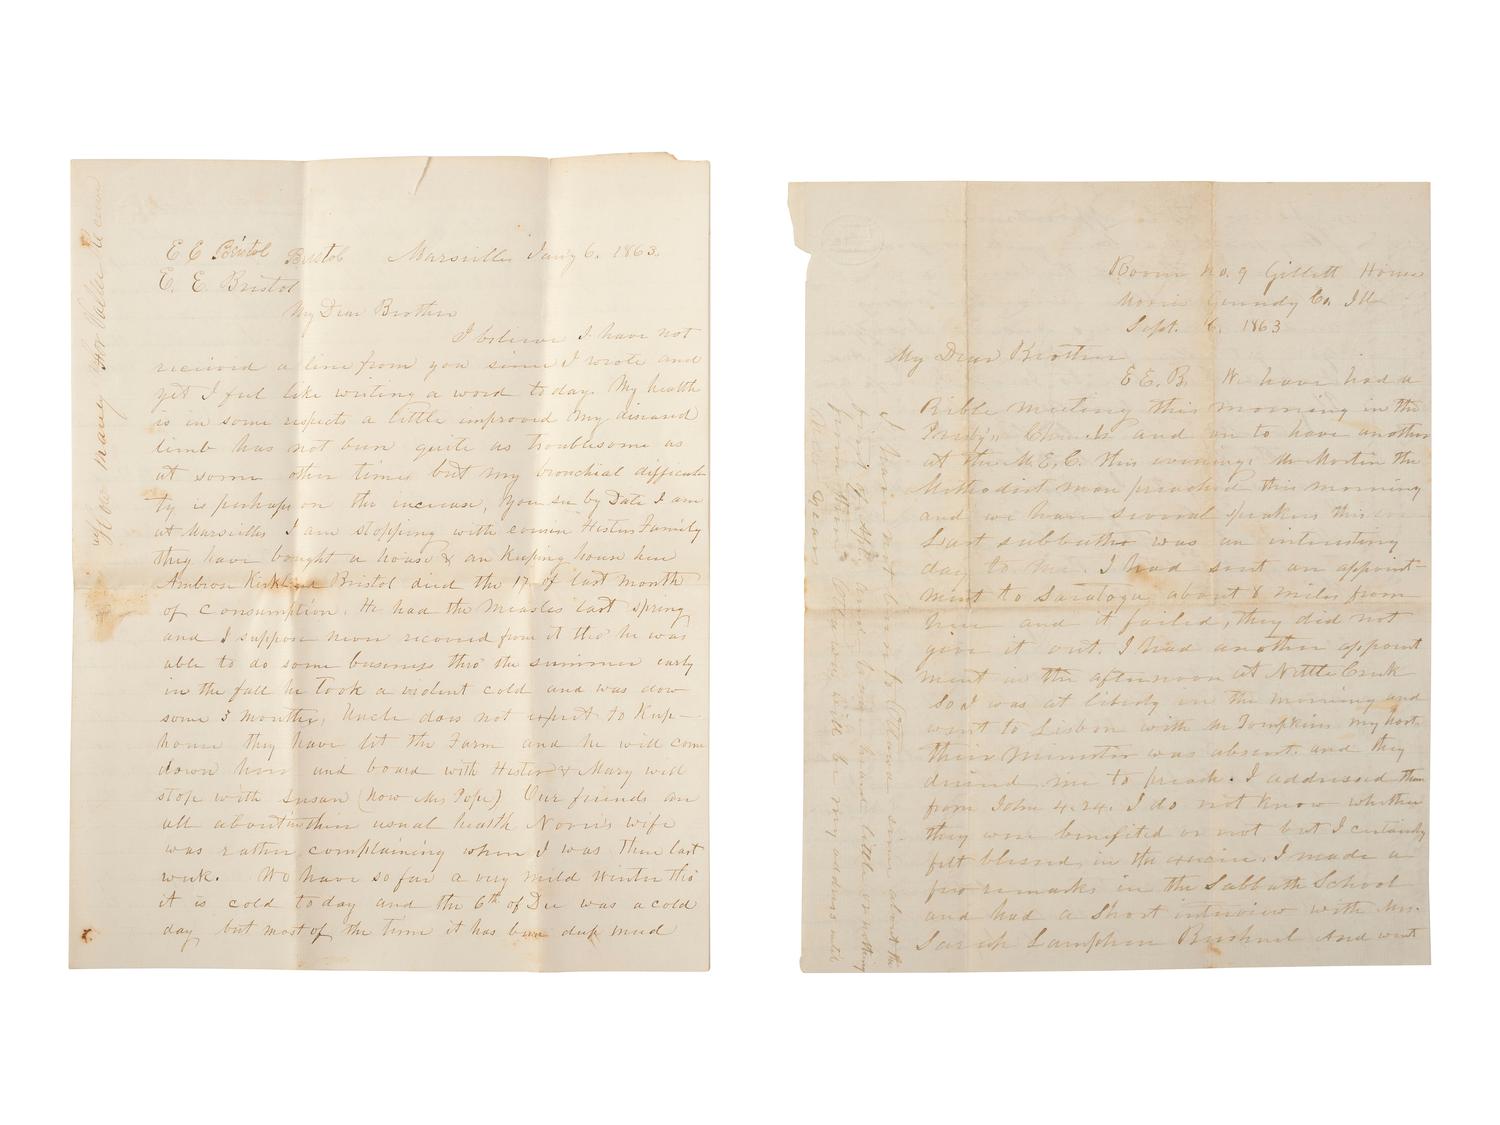 E E Bristol Bristol Marsailles Jany 6. 1863.
E. E. Bristol
My Dear Brother
I believe I have not
received a line from you since I wrote and
yet I feel like writing a word to day. My health
is in some respects a little improved My diseased
limb has not been quite as troublesome as
at some other times but my bronchial difficul
ty is perhaps on the increase, You see by Date I am
at Marsailles I am stopping with cousin Hesters Family
they have bought a house & are Keeping house here
Ambrose Kirkland Bristol died the 17 of last month
of consumption. He had the measles last spring
and I suppose never recovered from it tho he was
able to do some business thro the summer early
in the fall he took a violent cold and was down
some 3 months, Uncle does not expect to Keep
house they have let the Farm and he will come
down here and board with Hester & Mary will
stop with Susan (now Mrs Pope) Our friends are
all about in their usual health Norris wife
was rather complaining when I was there last
week. We have so far a very mild winter tho
it is cold to day and the 6th of Dec was a cold
day but most of the time it has been deep mud
How many
Room No. 9 Gillett House
Morris Grundy Co. Ill
Sept. 6. 1863
My Dear Brother
E E. B. We have had a
Bible meeting this morning in the
Presby'n Church and are to have another
at the M. E. C. this evening. Mr Morten the
Methodist man preached this morning
and we have several speakers this
Last sabbath was an interesting
day to me. I had sent an appoint-
ment to Saratoga about 8 miles from
here and it failed, they did not
give it out. I had another appoint
ment in the afternoon at Nettle Creek
So I was at liberty in the morning and
went to Lisbon with Mr Tompkins my host.
their minister was absent. and they
desired me to preach. I addressed them
from John 4.24. I do not know whether
they were benefited or not but I certainly
felt blessed in the exercise. I made a
few remarks in the Sabbath School
and had a short interview with Mrs.
Sarah Lamphere Bushnel And went
I have not been to Ottawa since about the
first of and have heard little or nothing
from there Ottawa will be my address until